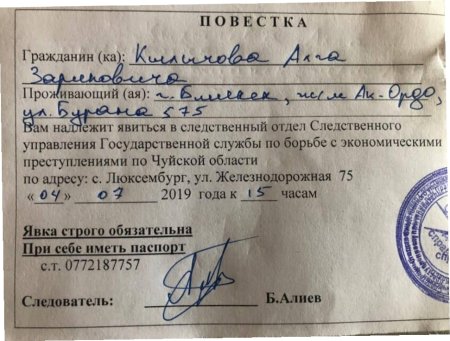 ПОВЕСТКА
Гражданин (ка): Кылычова Алга
Зариповича
Проживающий (ая): г. Бишкек, ж/м Ак-Ордо,
ул. Бурана 575
Вам надлежит явиться в следственный отдел Следственного
управления Государственной службы по борьбе с экономическими
преступлениями по Чуйской области
по адресу: с. Люксембург, ул. Железнодорожная 75
«04» 07 2019 года к 15 часам
Явка строго обязательна
При себе иметь паспорт
с.т. 0772187757
Следователь: Б.Алиев